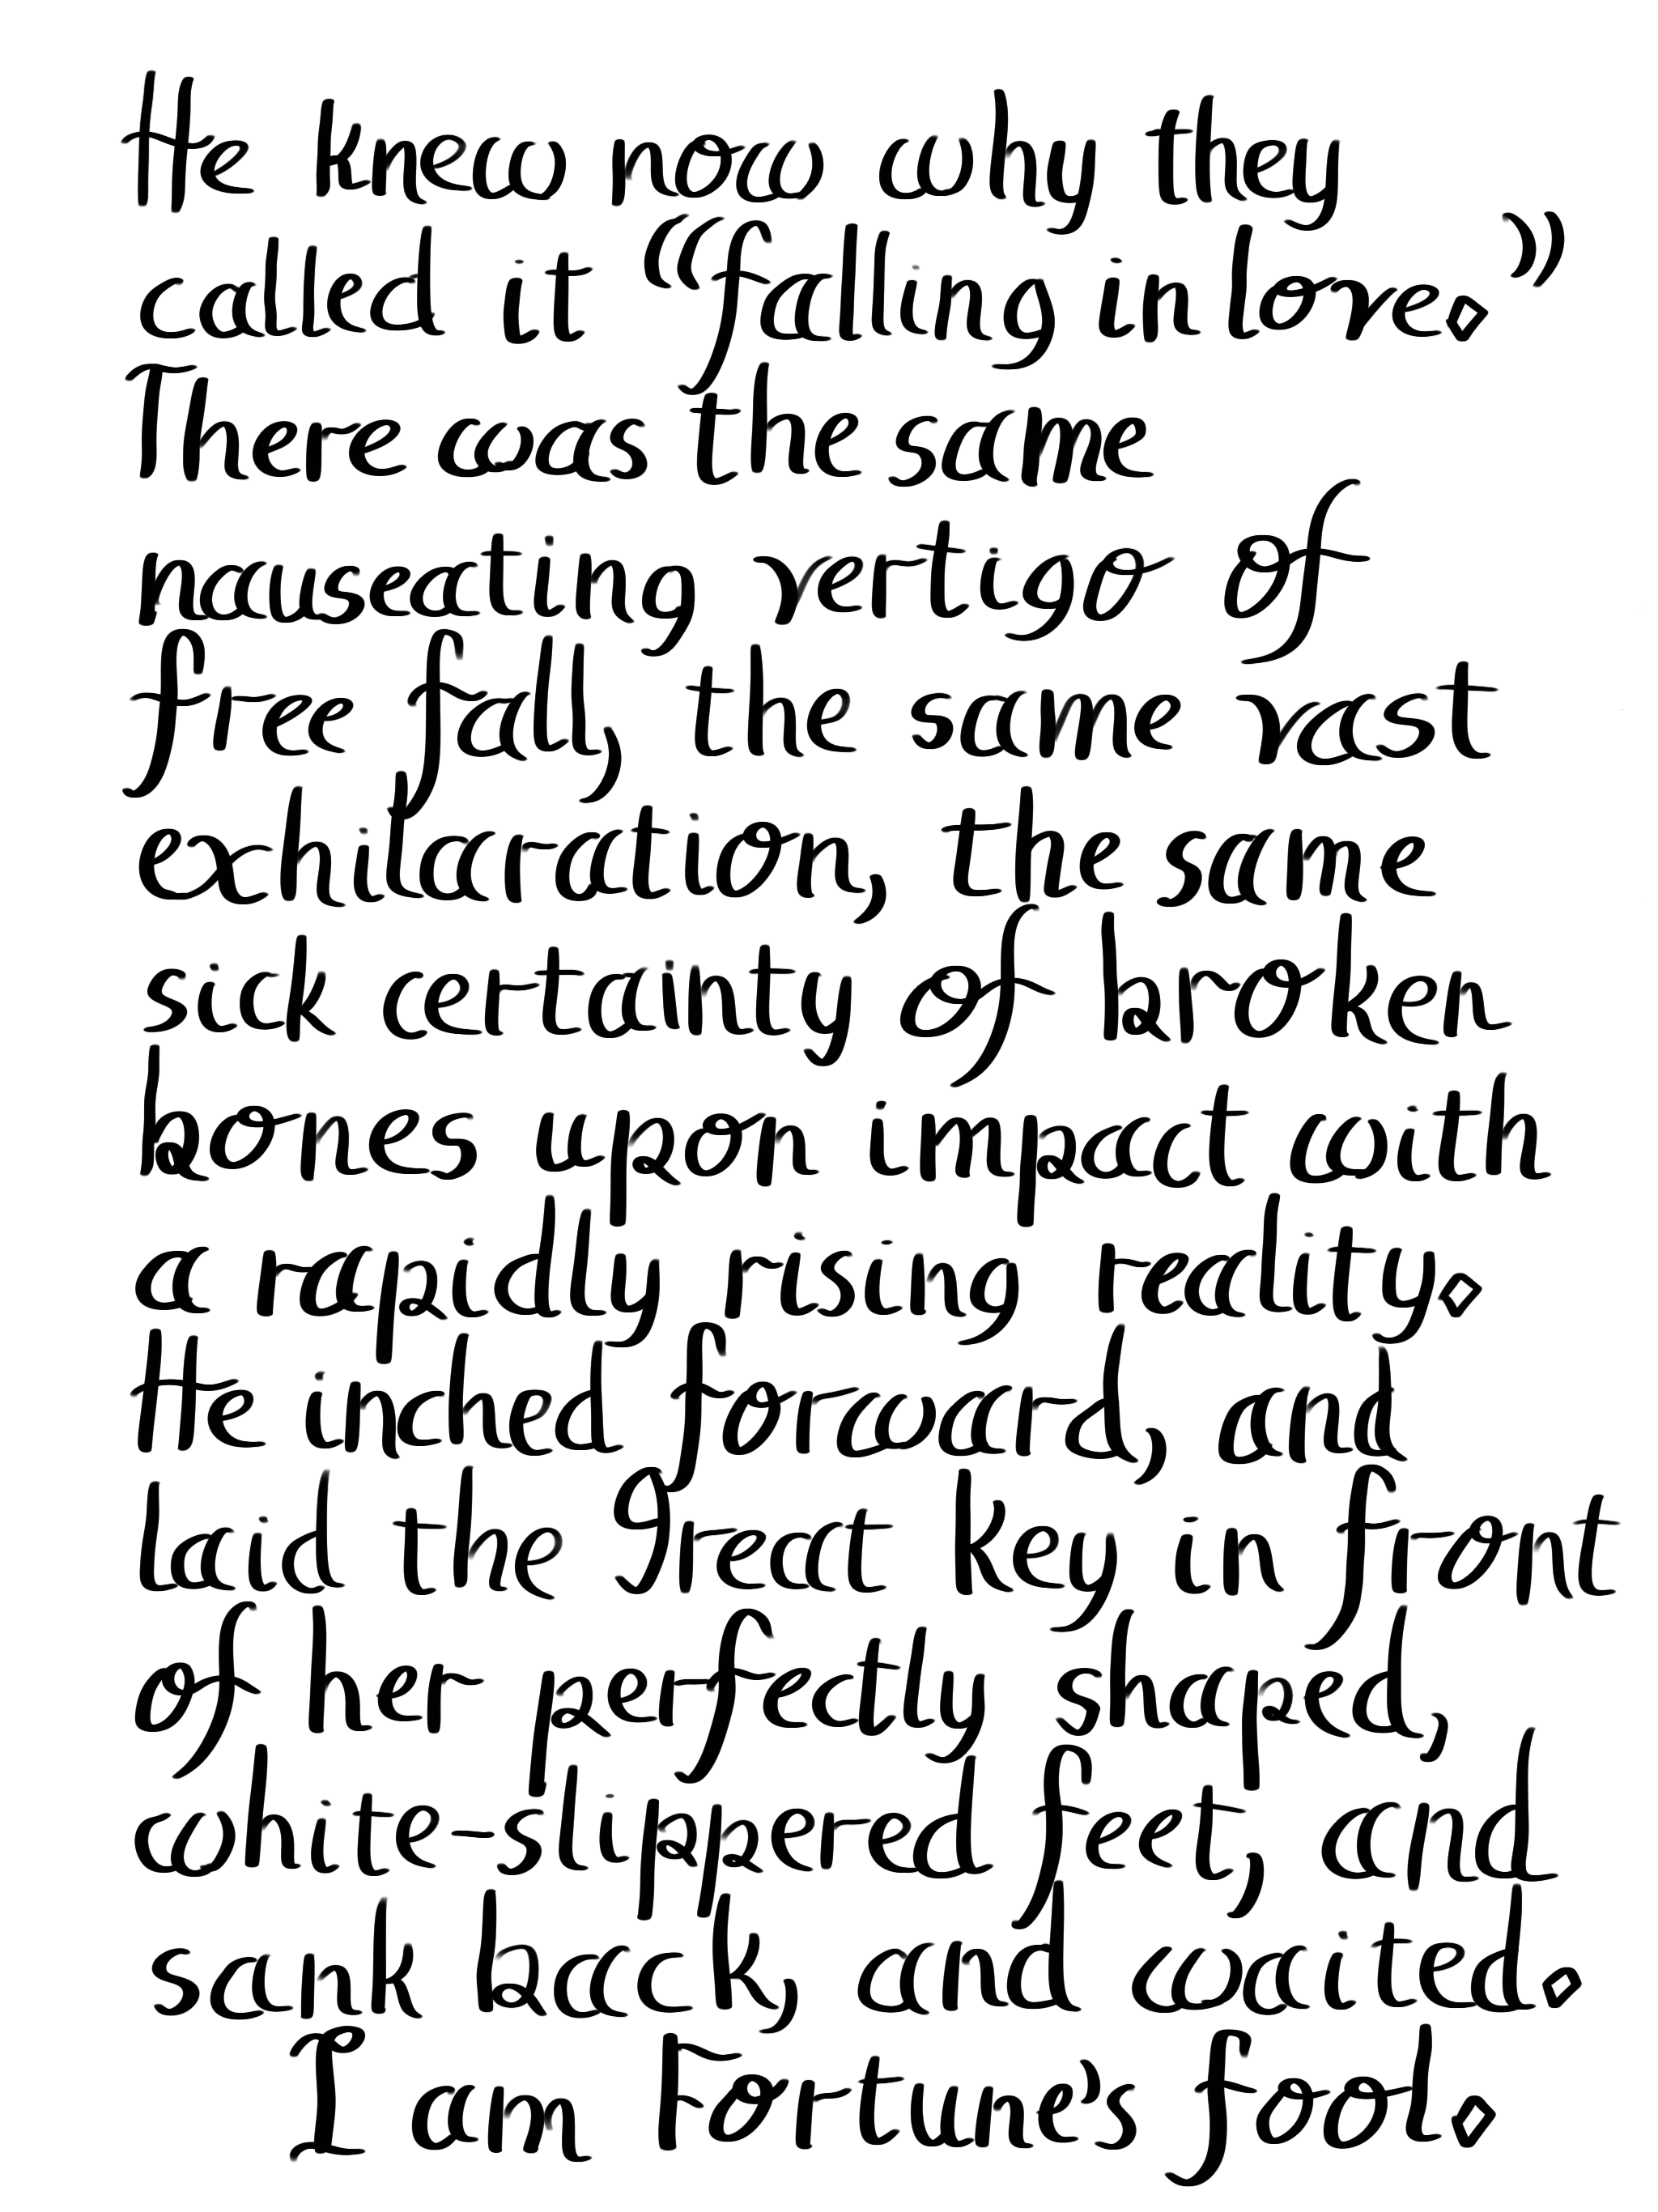 He knew now why they
called it “falling in love.”
There was the same
nauseating vertigo of
free fall, the same vast
exhilaration, the same
sick certainty of broken
bones upon impact with
a rapidly rising reality.
He inched forward, and
laid the Great Key in front
of her perfectly shaped,
white-slippered feet, and
sank back, and waited.
I am Fortune's fool.